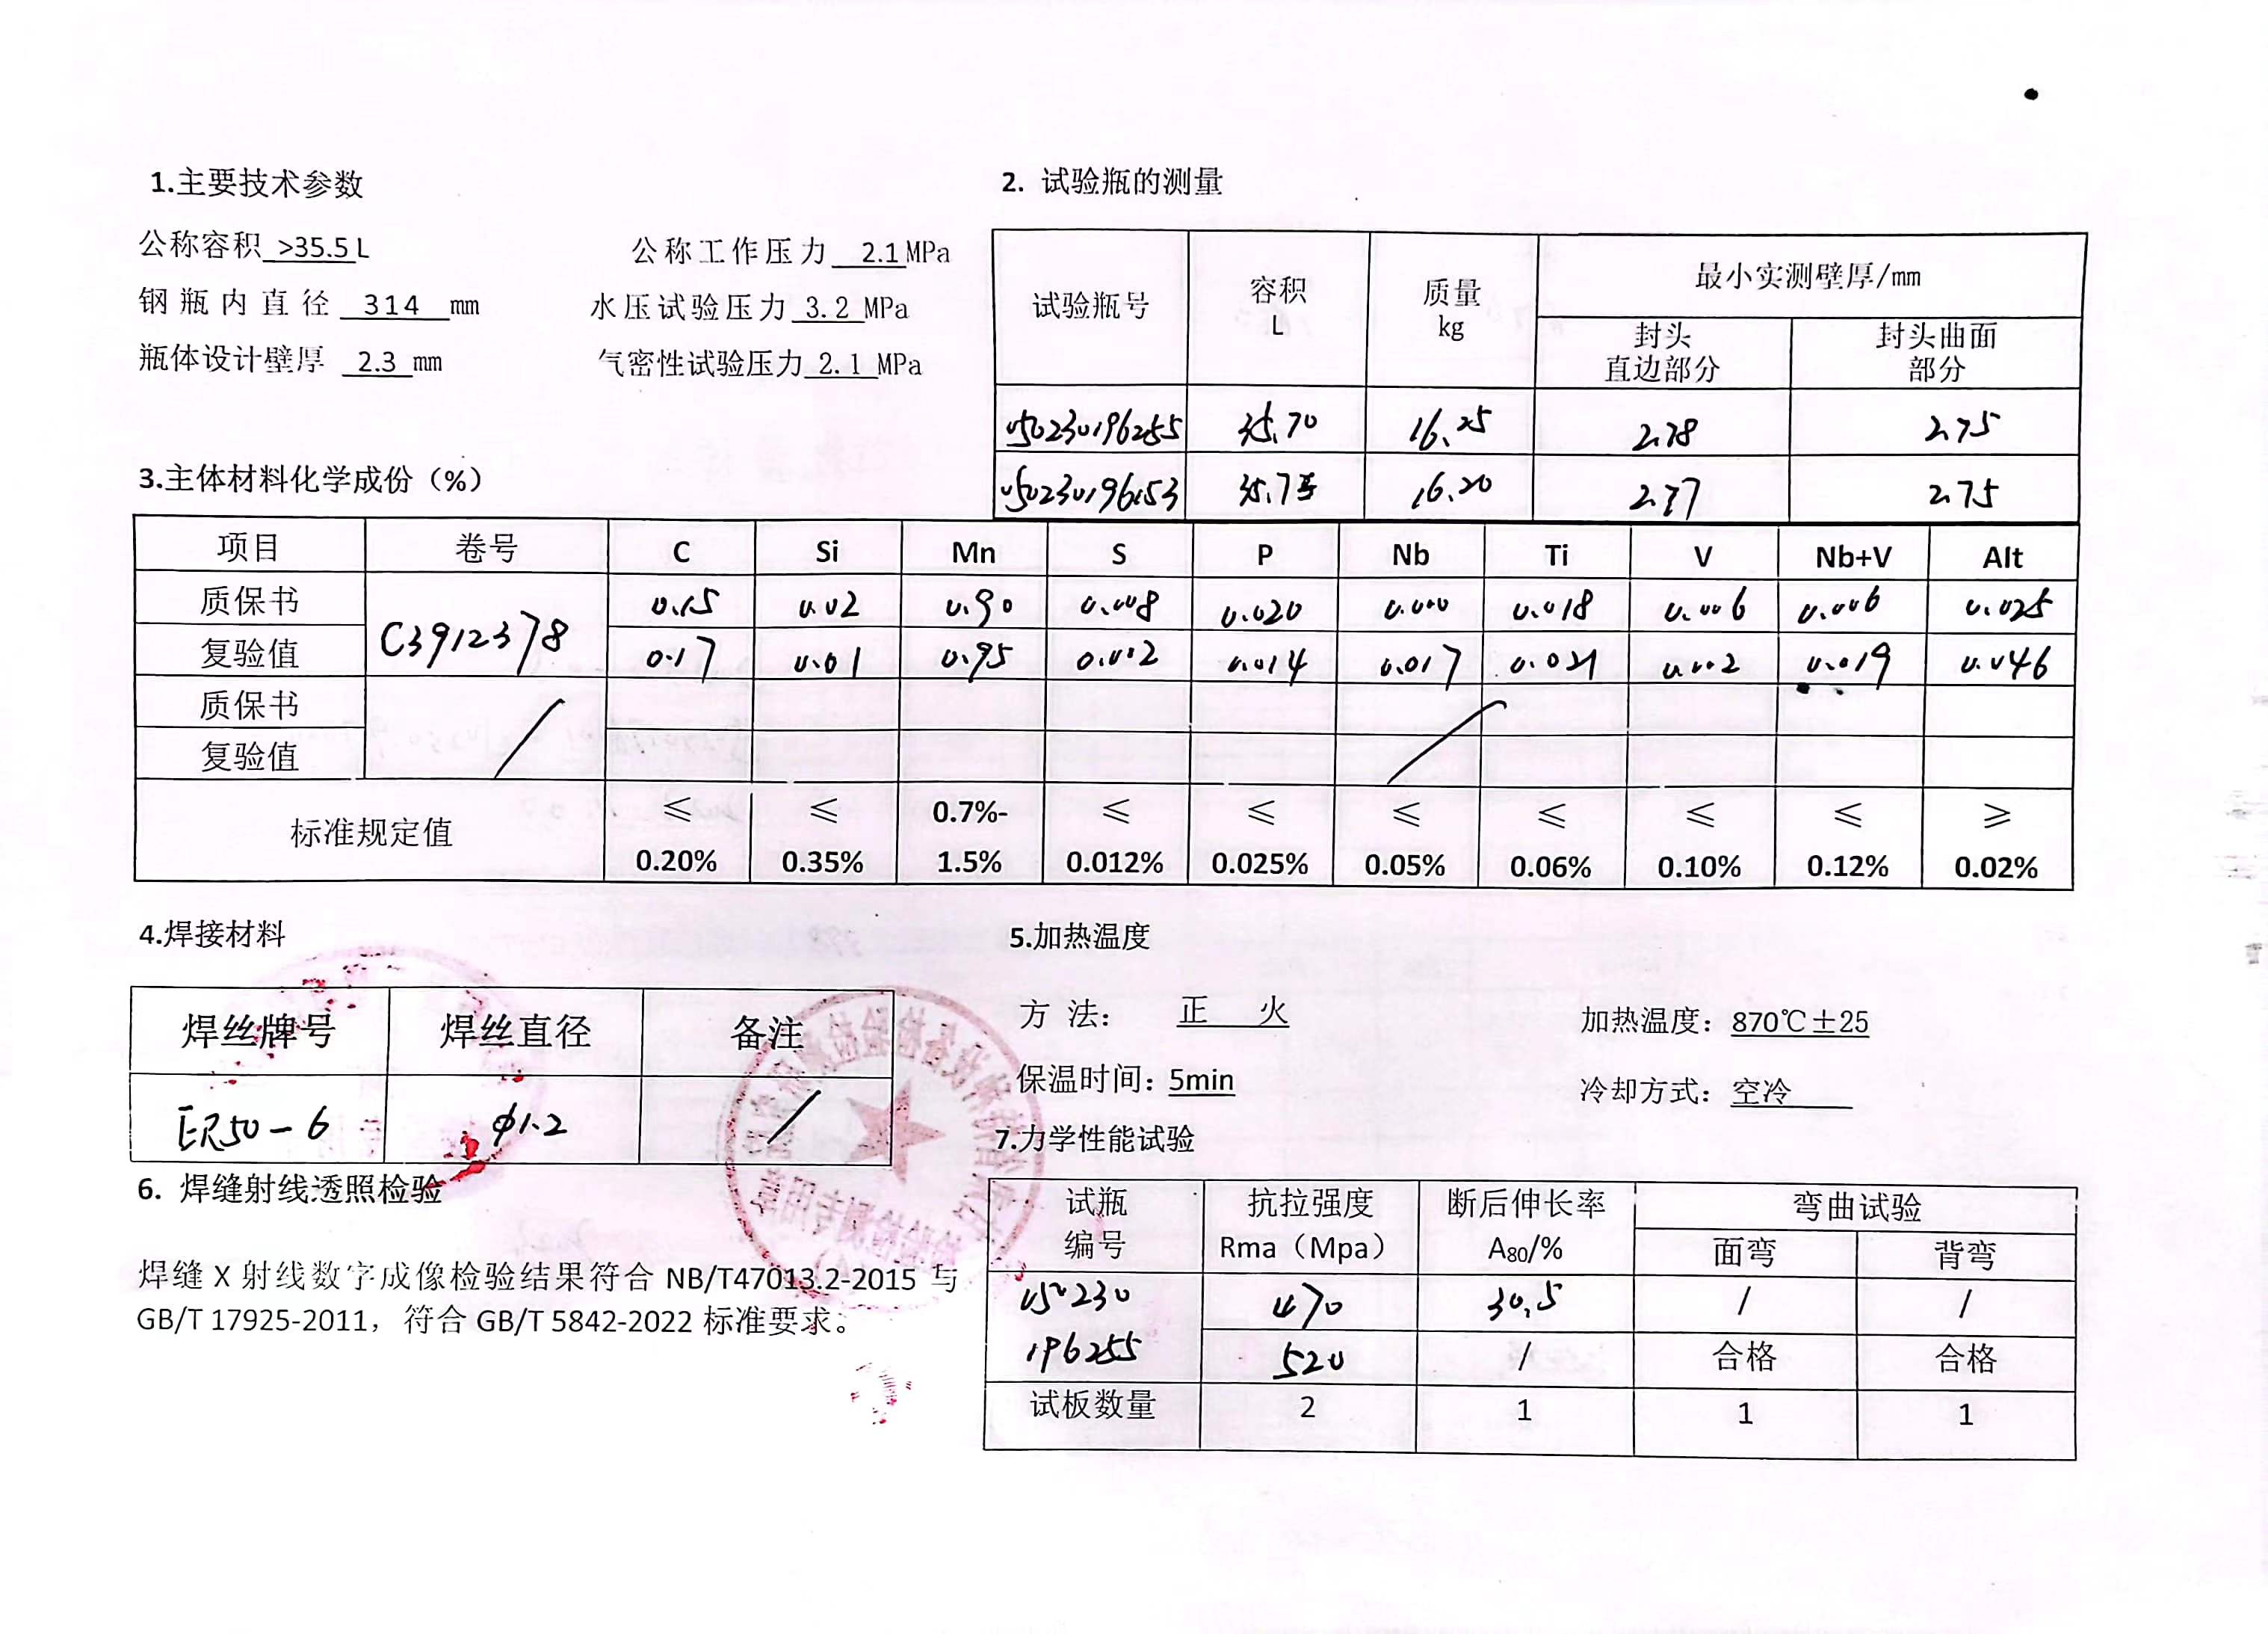 1.主要技术参数
公称容积 >35.5 L
公称工作压力 2.1 MPa
钢瓶内直径 314 mm
水压试验压力 3.2 MPa
瓶体设计壁厚 2.3 mm
气密性试验压力 2.1 MPa
2. 试验瓶的测量
试验瓶号 容积 L 质量 kg 最小实测壁厚/mm
封头直边部分 封头曲面部分
050230196255 35.70 16.25 2.78 2.75
050230196153 35.75 16.20 2.77 2.75
3.主体材料化学成份（%）
项目 卷号 C Si Mn S P Nb Ti V Nb+V Alt
质保书 C3912378 0.15 0.02 0.90 0.008 0.020 0.000 0.018 0.006 0.006 0.025
复验值 0.17 0.01 0.95 0.002 0.014 0.017 0.021 0.002 0.019 0.046
质保书 / /
复验值
标准规定值 ≤ ≤ 0.7%- ≤ ≤ ≤ ≤ ≤ ≤ ≥
0.20% 0.35% 1.5% 0.012% 0.025% 0.05% 0.06% 0.10% 0.12% 0.02%
4.焊接材料
焊丝牌号 焊丝直径 备注
ER50-6 φ1.2 /
5.加热温度
方 法： 正 火
加热温度：870℃±25
保温时间：5min
冷却方式：空冷
6. 焊缝射线透照检验
焊缝 X 射线数字成像检验结果符合 NB/T47013.2-2015 与
GB/T 17925-2011，符合 GB/T 5842-2022 标准要求。
7.力学性能试验
试瓶 抗拉强度 断后伸长率 弯曲试验
编号 Rma（Mpa） A80/% 面弯 背弯
050230 470 30.5 / /
196255 520 / 合格 合格
试板数量 2 1 1 1